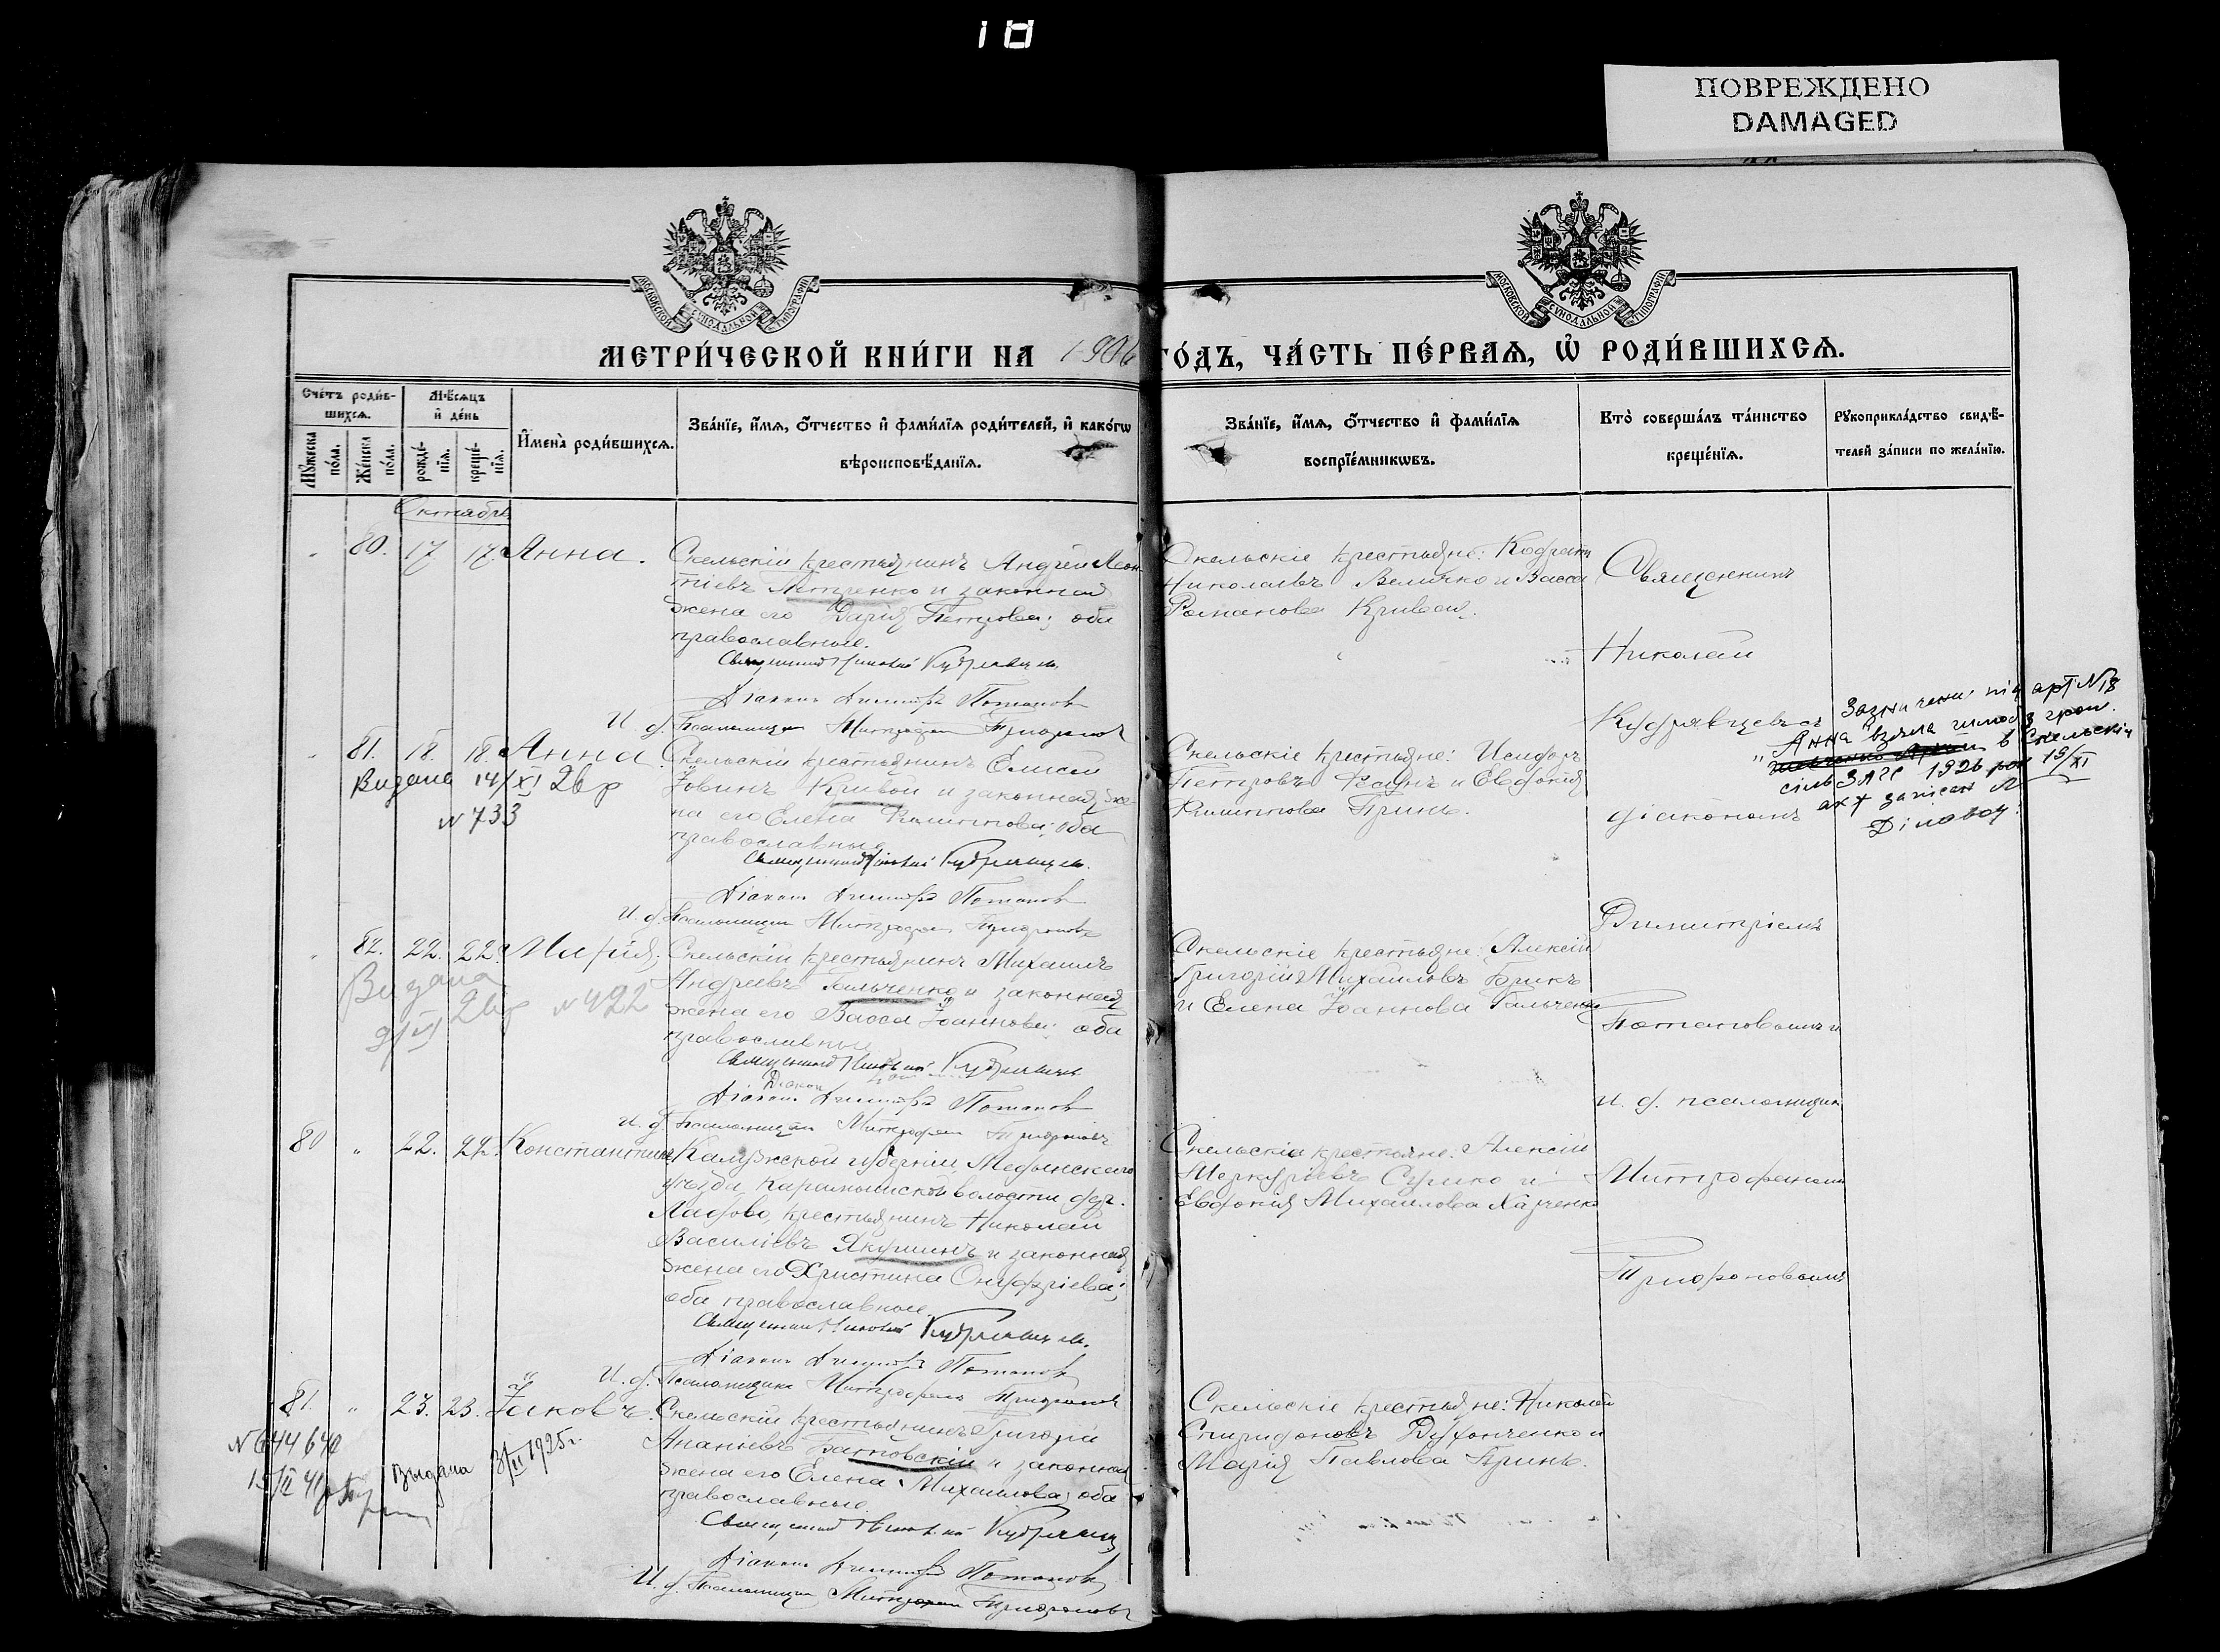 18
ПОВРЕЖДЕНО
DAMAGED
МОСКОВСКОЙ СѴНОДАЛЬНОЙ ТИПОГРАФІИ
МОСКОВСКОЙ СѴНОДАЛЬНОЙ ТИПОГРАФІИ
МЕТРИ́ЧЕСКОЙ КНИ́ГИ НА 1906
ГО́ДЪ, ЧА́СТЬ ПЕ́РВАѦ, Ѽ РОДИ́ВШИХСѦ.
Сче́тъ роди́в-
шихсѧ.
Мꙋжеска по́ла.
Же́нска по́ла.
Мѣ́сѧцъ
и҆ де́нь
рожде́-
нїѧ.
креще́-
нїѧ.
И҆мена̀ роди́вшихсѧ.
Зва́нїе, и҆́мѧ, ѻ҆́тчество и҆ фами́лїѧ роди́телей, и҆ како́гѡ
вѣроисповѣ́данїѧ.
Зва́нїе, и҆́мѧ, ѻ҆́тчество и҆ фами́лїѧ
воспрїе́мникѡвъ.
Кто̀ соверша́лъ та́инство
креще́нїѧ.
Рꙋкоприкла́дство свидѣ́-
телей за́писи по жела́нїю.
Октябрь
" 80. 17 17. Анна.
Скельскій крестьянинъ Андрей Леон-
тіевъ Петренко и законная
жена его Дарія Петрова; оба
православные.
Священникъ Николай Кудрявцевъ.
Діаконъ Димитрій Потаповъ
И. д. Псаломщика Митрофанъ Трифоновъ
Скельскіе крестьяне: Кодратъ
Николаевъ Величко и Васса
Романова Кривая.
Священникъ
Николай
Кудрявцевъ съ
" 81. 18. 18. Анна.
Видана 14/XI 26 р
№ 733
Скельскій крестьянинъ Елисей
Іовинъ Кривой и законная же-
на его Елена Филиппова; оба
православные
Священникъ Николай Кудрявцевъ.
Діаконъ Димитрій Потаповъ
И. д. Псаломщика Митрофанъ Трифоновъ
Скельскіе крестьяне: Исидоръ
Петровъ и Евдокія
Филиппова Принь.
діакономъ
Димитріемъ
під арт № 18
Анна взяла шлюб з гром.
в Скельскій
сіль ЗАГС 1926 рок 19/XI
акт записан №
Діловод:
" 82. 22. 22. Марія,
Видана
9/VI 26 р № 492
Скельскій крестьянинъ Михаилъ
Андреевъ Гальченко и законная
жена его Васса Іоаннова; оба
православные
Священникъ Николай Кудрявцевъ
Діаконъ Димитрій Потаповъ
И. д. Псаломщика Митрофанъ Трифоновъ
Скельскіе крестьяне: Алексій
Григорій Михаиловъ Брикъ
и Елена Іоаннова Гальченко
Потаповымъ и
и. д. псаломщика
80 " 22. 22. Константинъ
Калужской губерніи, Медынскаго
уѣзда Карамышской волости дер.
Ладово, крестьянинъ Николай
Василіевъ Якушинъ и законная
жена его Христина Онуфріева;
оба православные.
Священникъ Николай Кудрявцевъ.
Діаконъ Димитрій Потаповъ
И. д. Псаломщика Митрофанъ Трифоновъ
Скельскіе крестьяне: Алексій
Меркуріевъ Сушко и
Евдокія Михаилова Харченко
Митрофаномъ
Трифоновымъ
81. " 23. 23. Іаковъ.
№ 644640
Выдана 3/II 1925 г.
15/II 41
Скельскій крестьянинъ Григорій
Ананіевъ Батовскій и законная
жена его Елена Михаилова; оба
православные.
Священникъ Николай Кудрявцевъ
Діаконъ Димитрій Потаповъ
И. д. Псаломщика Митрофанъ Трифоновъ
Скельскіе крестьяне: Николай
Спиридоновъ Духонченко и
Марія Павлова Принь.